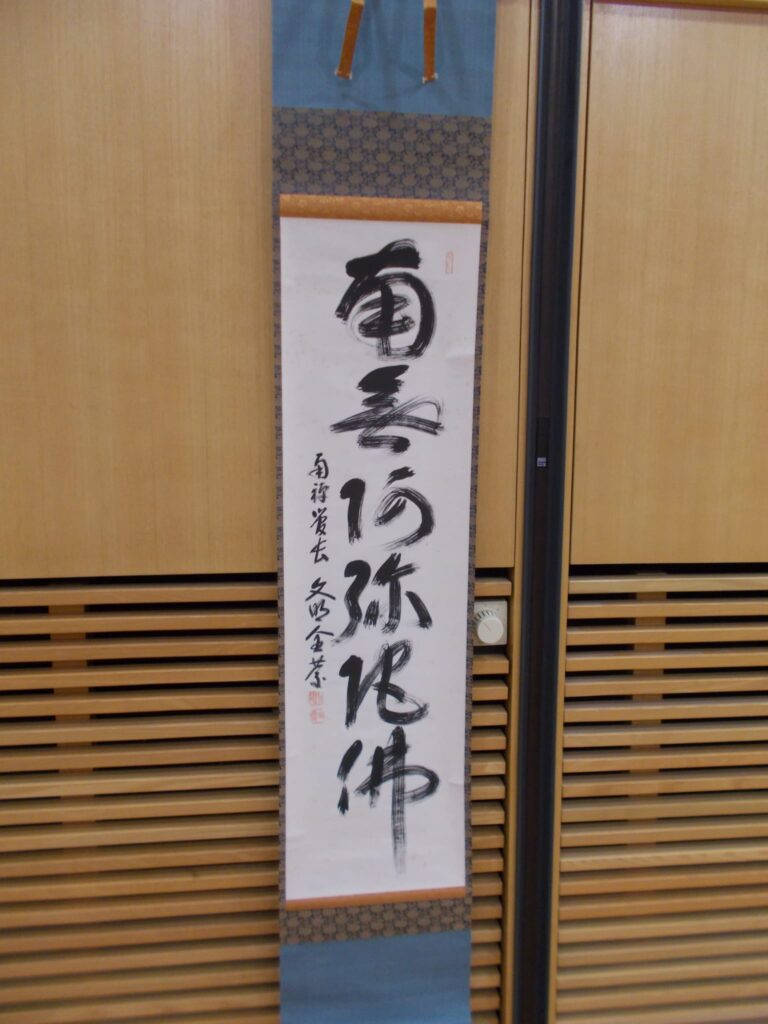 南無阿弥陀佛
南禅管長 文明全慶